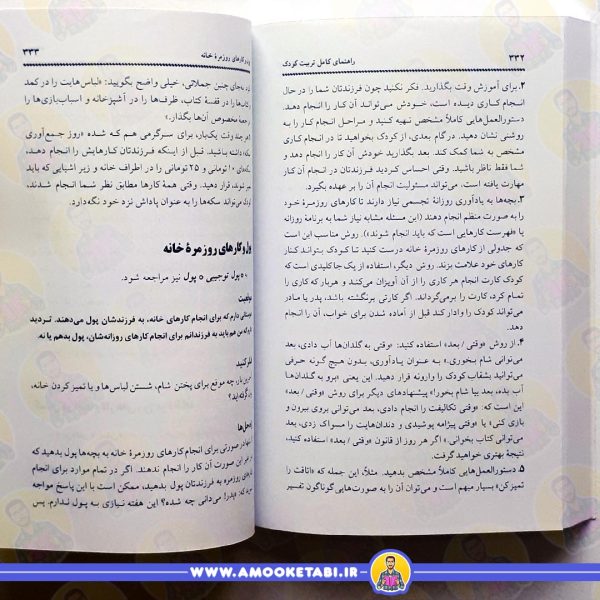 ۳۳۲
راهنمای کامل تربیت کودک
۲. برای آموزش وقت بگذارید. فکر نکنید چون فرزندتان شما را در حال
انجام کاری دیده است، خودش می‌تواند آن کار را انجام دهد.
دستورالعمل‌هایی کاملاً مشخص تهیه کنید و مراحل انجام کار را
روشنی نشان دهید. در گام بعدی، از کودک بخواهید تا در انجام کاری
مشخص به شما کمک کند. بعد بگذارید خودش آن کار را انجام دهد و
شما فقط ناظر باشید. وقتی احساس کردید فرزندتان در انجام آن کار
مهارت یافته است، می‌تواند مسئولیت انجام آن را بر عهده بگیرد.
۳. بچه‌ها به یادآوری روزانهٔ تجسمی نیاز دارند تا کارهای روزمرهٔ خود
را به صورت منظم انجام دهند (این مسئله مشابه نیاز شما به برنامهٔ روزانه
یا «فهرست کارهایی است که باید انجام شوند»). روش مناسب این است
که جدولی از کارهای روزمرهٔ خانه درست کنید تا کودک بتواند کنار
کارهای خود علامت بزند. روش دیگر، استفاده از یک جاکلیدی است که
کودک کارت انجام هر کاری را از آن آویزان می‌کند و هربار که کاری را
تمام کرد، کارت را برمی‌گرداند. اگر کارتی برنگشته باشد، پدر یا مادر
می‌تواند کودک را وادار کند قبل از آماده شدن برای خواب، آن را انجام
دهد.
۴. از روش «وقتی / بعد» استفاده کنید: «وقتی به گلدان‌ها آب دادی، بعد
می‌توانی شام بخوری.» به عنوان یادآوری، بدون هیچ گونه حرفی
می‌توانید بشقاب کودک را وارونه قرار دهید. این یعنی «برو به گلدان‌ها
آب بده، بعد بیا شام بخور!» پیشنهادهای دیگر برای روش «وقتی / بعد»
این است که: «وقتی تکالیفت را انجام دادی، بعد می‌توانی بروی بیرون و
بازی کنی» یا «وقتی پیژامه پوشیدی و دندان‌هایت را مسواک زدی، بعد
می‌توانی کتاب بخوانی.» اگر هر روز از قانون «وقتی / بعد» استفاده کنید،
نتیجهٔ بهتری خواهید گرفت.
۵. دستورالعمل‌هایی کاملاً مشخص بدهید. مثلاً، این جمله که «اتاقت را
تمیز کن» بسیار مبهم است و می‌توان آن را به صورت‌هایی گوناگون تفسیر
کارهای روزمرهٔ خانه
۳۳۳
به‌جای چنین جملاتی، خیلی واضح بگویید: «لباس‌هایت را در کمد
کتاب‌ها را در قفسهٔ کتاب، ظرف‌ها را در آشپزخانه و اسباب‌بازی‌ها را
مخصوص آن‌ها بگذار.»
هرچند وقت یک‌بار، برای سرگرمی هم که شده «روز جمع‌آوری
داشته باشید. قبل از اینکه فرزندتان کارهایش را انجام دهد،
۱۰ تومانی و ۲۵ تومانی را در اطراف خانه و زیر اشیایی که باید
شوند، قرار دهید. وقتی همهٔ کارها مطابق نظر شما انجام شدند،
می‌تواند سکه‌ها را به عنوان پاداش نزد خود نگه‌دارد.
پول و کارهای روزمرهٔ خانه
پول توجیبی ٭ پول نیز مراجعه شود.
موقعیت
دوستانی دارم که برای انجام کارهای خانه، به فرزندشان پول می‌دهند. تردید
که من هم باید به فرزندانم برای انجام کارهای روزانه‌شان، پول بدهم یا نه.
فکر کنید
چه موقع برای پختن شام، شستن لباس‌ها و یا تمیز کردن خانه،
گرفته‌اید؟
راه‌حل‌ها
در صورتی برای انجام کارهای روزمرهٔ خانه به بچه‌ها پول بدهید که
این صورت آن کار را انجام ندهند. اگر در تمام موارد برای انجام
روزمره به فرزندتان پول بدهید، ممکن است با این پاسخ مواجه
که: «پدر! می‌دانی چه شده؟ این هفته نیازی به پول ندارم. پس
WWW.AMOOKETABI.IR